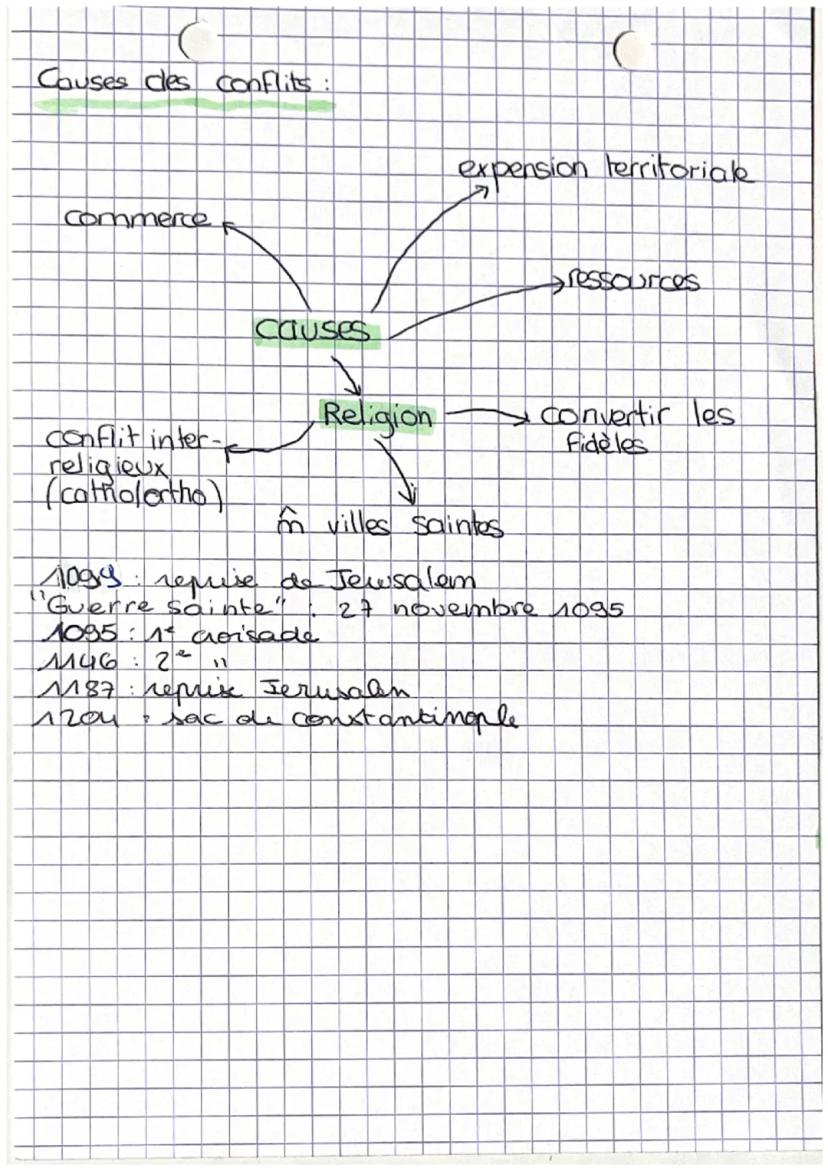 Causes des conflits :
expension territoriale
commerce
ressources
causes
Religion
convertir les
fidèles
conflit inter-
religieux
(catho/ortho)
m̂ villes saintes
1099 : reprise de Jerusalem
"Guerre sainte" : 27 novembre 1095
1095 : 1e croisade
1146 : 2e "
1187 : reprise Jerusalem
1204 : sac de constantinople